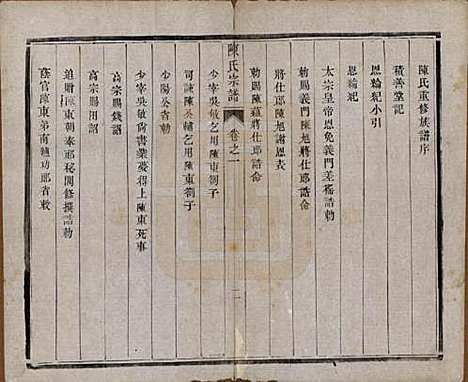 陳氏重修族譜序
積善堂記
恩綸紀小引
恩綸紀
太宗皇帝恩免義門差徭誥
勅賜義門陳旭將仕郎誥命
將仕郎陳旭謝恩表
勅賜陳蘊將仕郎誥命
陳氏宗譜
卷之一
二
少宰吳敏乞用陳東劄子
司諫陳公輔乞用陳東劄子
少陽公省勅
少宰吳敏尚書業夢得上陳東死事
高宗賜錢詔
高宗賜田詔
追贈陳東朝奉郎秘閣修撰誥勅
蔭官陳東弟南迪功郎省敕